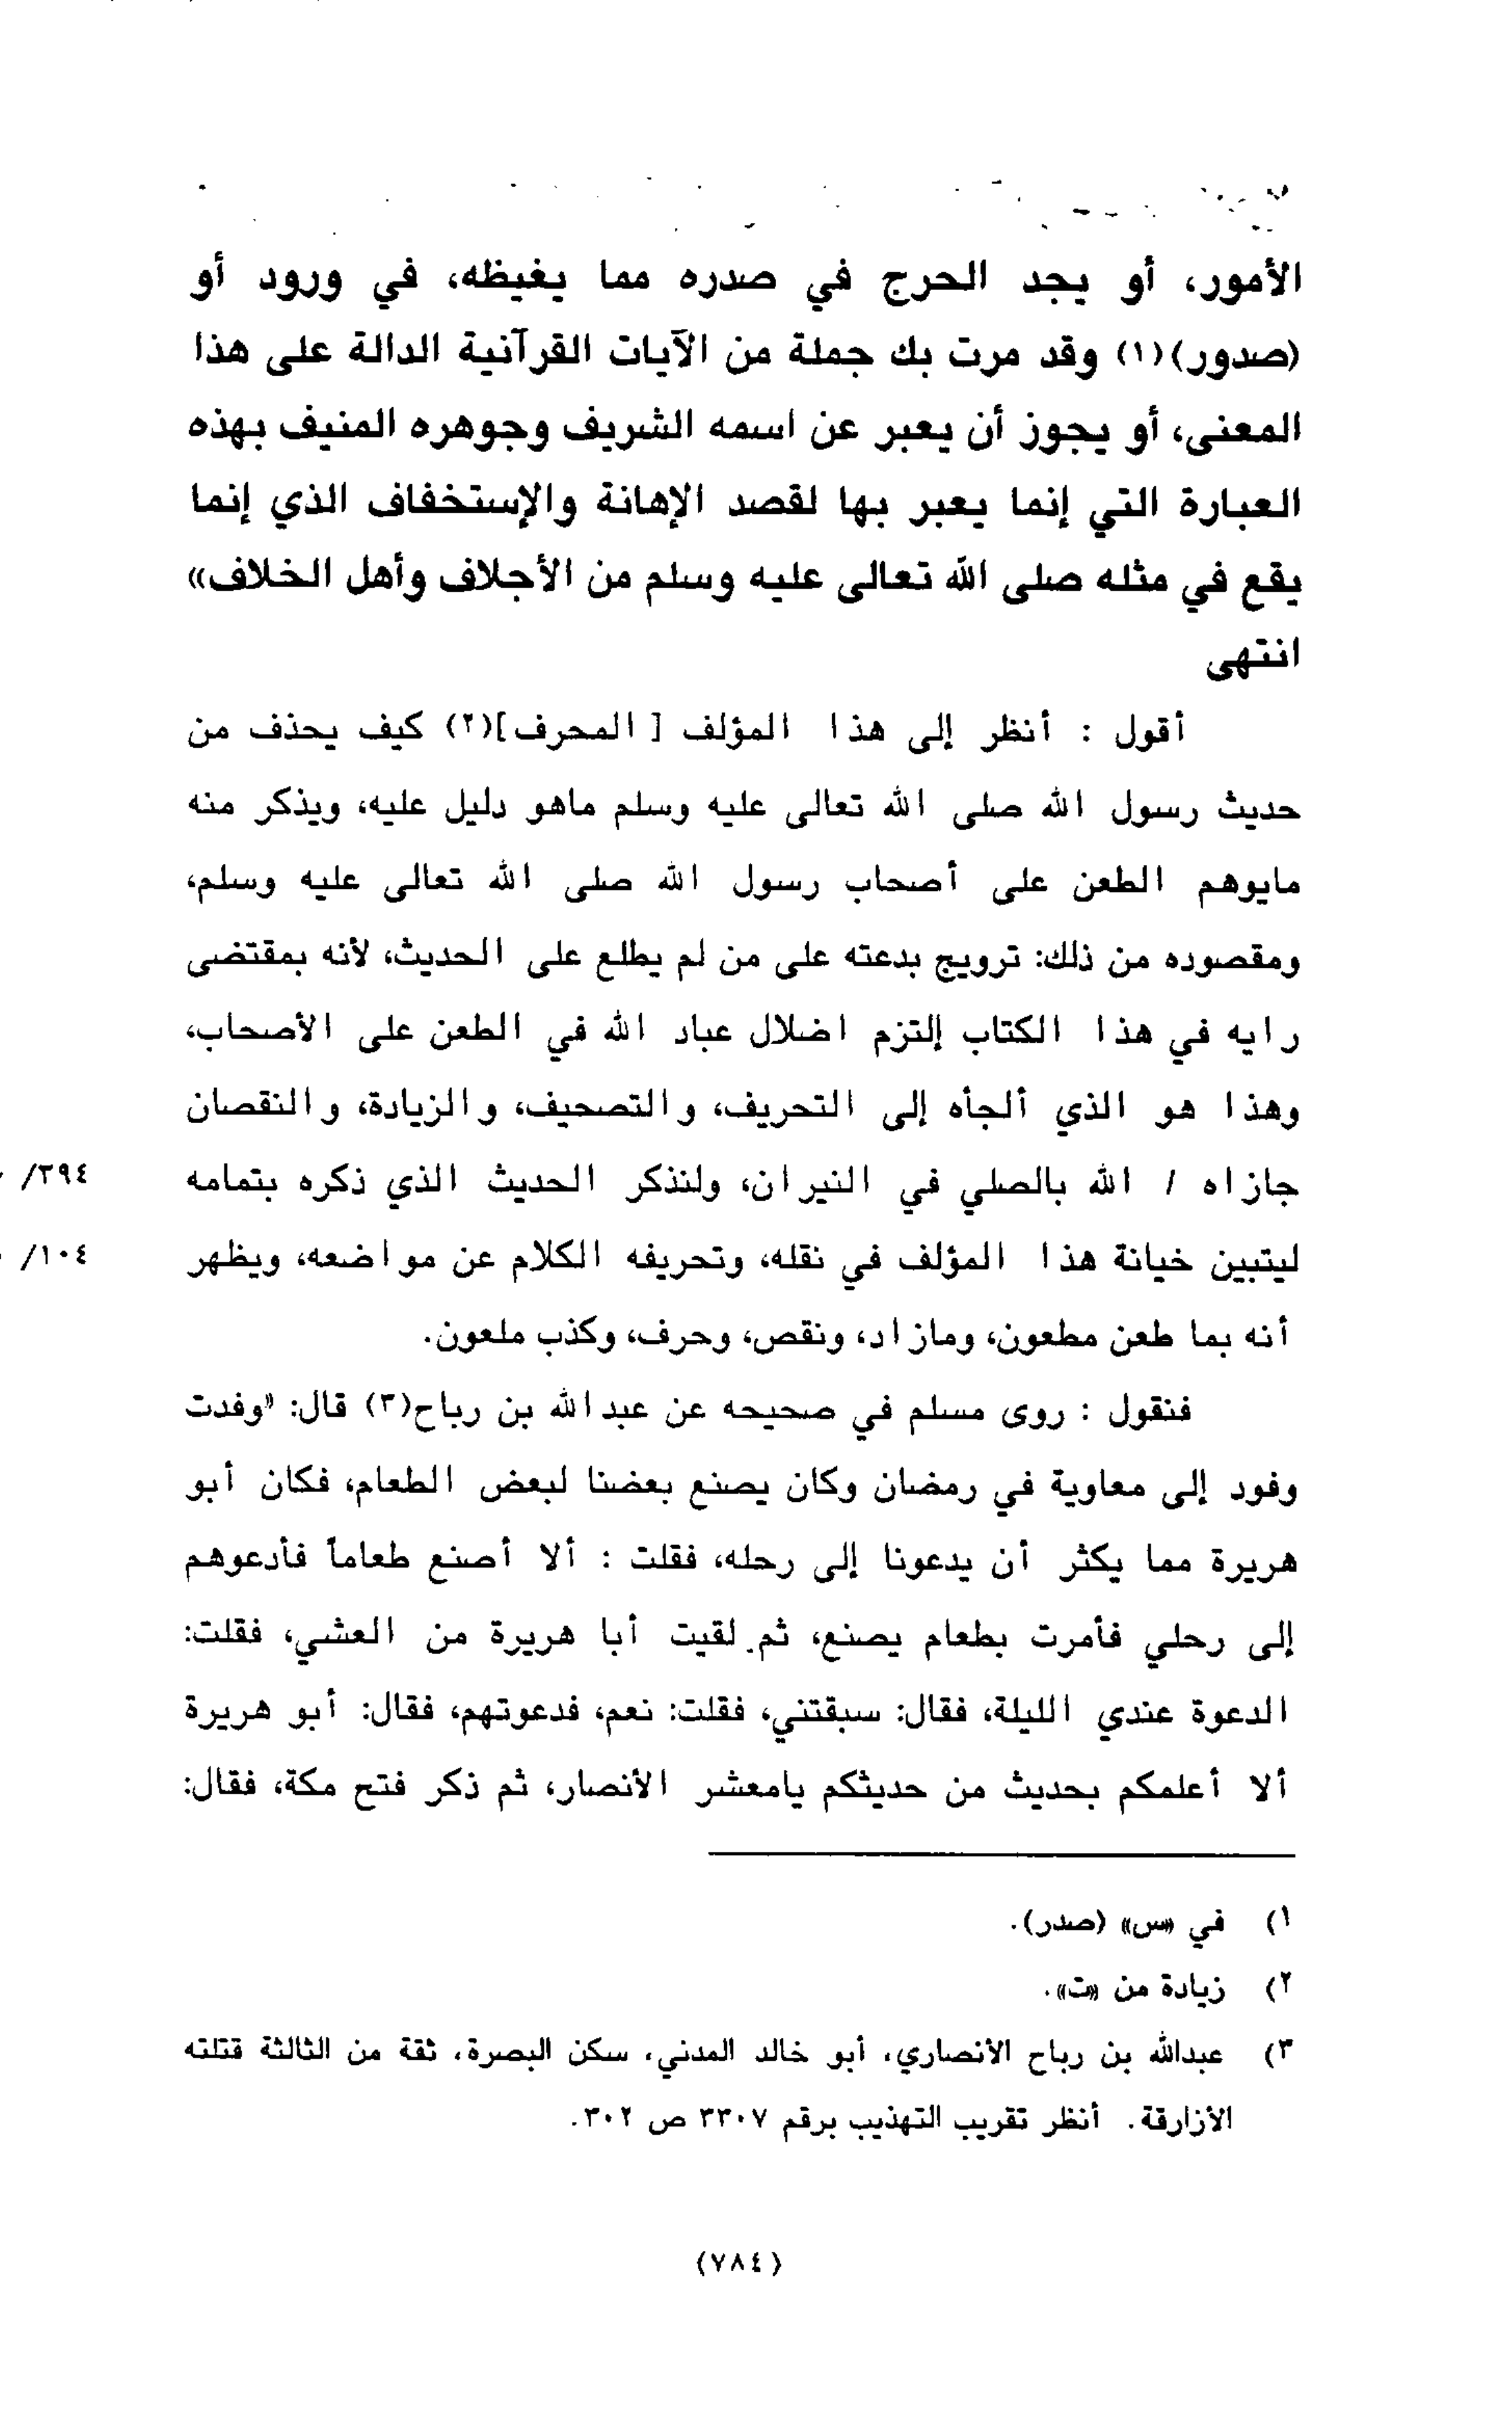 الأمور، أو يجد الحرج في صدره مما يغيظه، في ورود أو
(صدور)(١) وقد مرت بك جملة من الآيات القرآنية الدالة على هذا
المعنى، أو يجوز أن يعبر عن اسمه الشريف وجوهره المنيف بهذه
العبارة التي إنما يعبر بها لقصد الإهانة والإستخفاف الذي إنما
يقع في مثله صلى الله تعالى عليه وسلم من الأجلاف وأهل الخلاف»
انتهى
أقول : أنظر إلى هذا المؤلف [ المحرف](٢) كيف يحذف من
حديث رسول الله صلى الله تعالى عليه وسلم ماهو دليل عليه، ويذكر منه
مايوهم الطعن على أصحاب رسول الله صلى الله تعالى عليه وسلم،
ومقصوده من ذلك: ترويج بدعته على من لم يطلع على الحديث، لأنه بمقتضى
رايه في هذا الكتاب إلتزم اضلال عباد الله في الطعن على الأصحاب،
وهذا هو الذي ألجأه إلى التحريف، والتصحيف، والزيادة، والنقصان
جازاه / الله بالصلي في النيران، ولنذكر الحديث الذي ذكره بتمامه
٣٩٤/
ليتبين خيانة هذا المؤلف في نقله، وتحريفه الكلام عن مواضعه، ويظهر
١٠٤/
أنه بما طعن مطعون، ومازاد، ونقص، وحرف، وكذب ملعون.
فنقول : روى مسلم في صحيحه عن عبدالله بن رباح(٣) قال: «وفدت
وفود إلى معاوية في رمضان وكان يصنع بعضنا لبعض الطعام، فكان أبو
هريرة مما يكثر أن يدعونا إلى رحله، فقلت : ألا أصنع طعاماً فأدعوهم
إلى رحلي فأمرت بطعام يصنع، ثم لقيت أبا هريرة من العشي، فقلت:
الدعوة عندي الليلة، فقال: سبقتني، فقلت: نعم، فدعوتهم، فقال: أبو هريرة
ألا أعلمكم بحديث من حديثكم يامعشر الأنصار، ثم ذكر فتح مكة، فقال:
١) في «س» (صدر).
٢) زيادة من «ت».
٣) عبدالله بن رباح الأنصاري، أبو خالد المدني، سكن البصرة، ثقة من الثالثة قتلته
الأزارقة. أنظر تقريب التهذيب برقم ٣٣٠٧ ص ٣٠٢.
(٧٨٤)